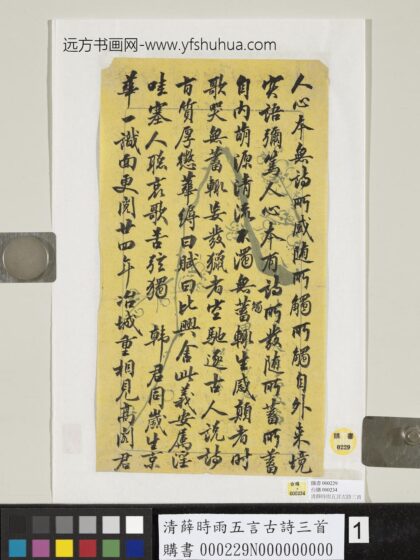 远方书画网-www.yfshuhua.com
人心本無詩所感隨所觸所觸自外來境
實語彌篤人心本有詩所發隨所蓄所蓄
自內萌源清流不濁無蓄輒生感顛者時
觸
歌哭無蓄輒妄發獵者空馳逐古人說詩
旨質厚懲華縟曰賦曰比興舍此義安屬淫
哇塞人聽哀歌苦弦獨 韓君同歲生京
華一識面更閱廿四年冶城重相見高閎君
購書
0229
台購
000234
購書 000229
台購 000234
清薛時雨五言古詩三首
清薛時雨五言古詩三首
購書 000229N000000000
1